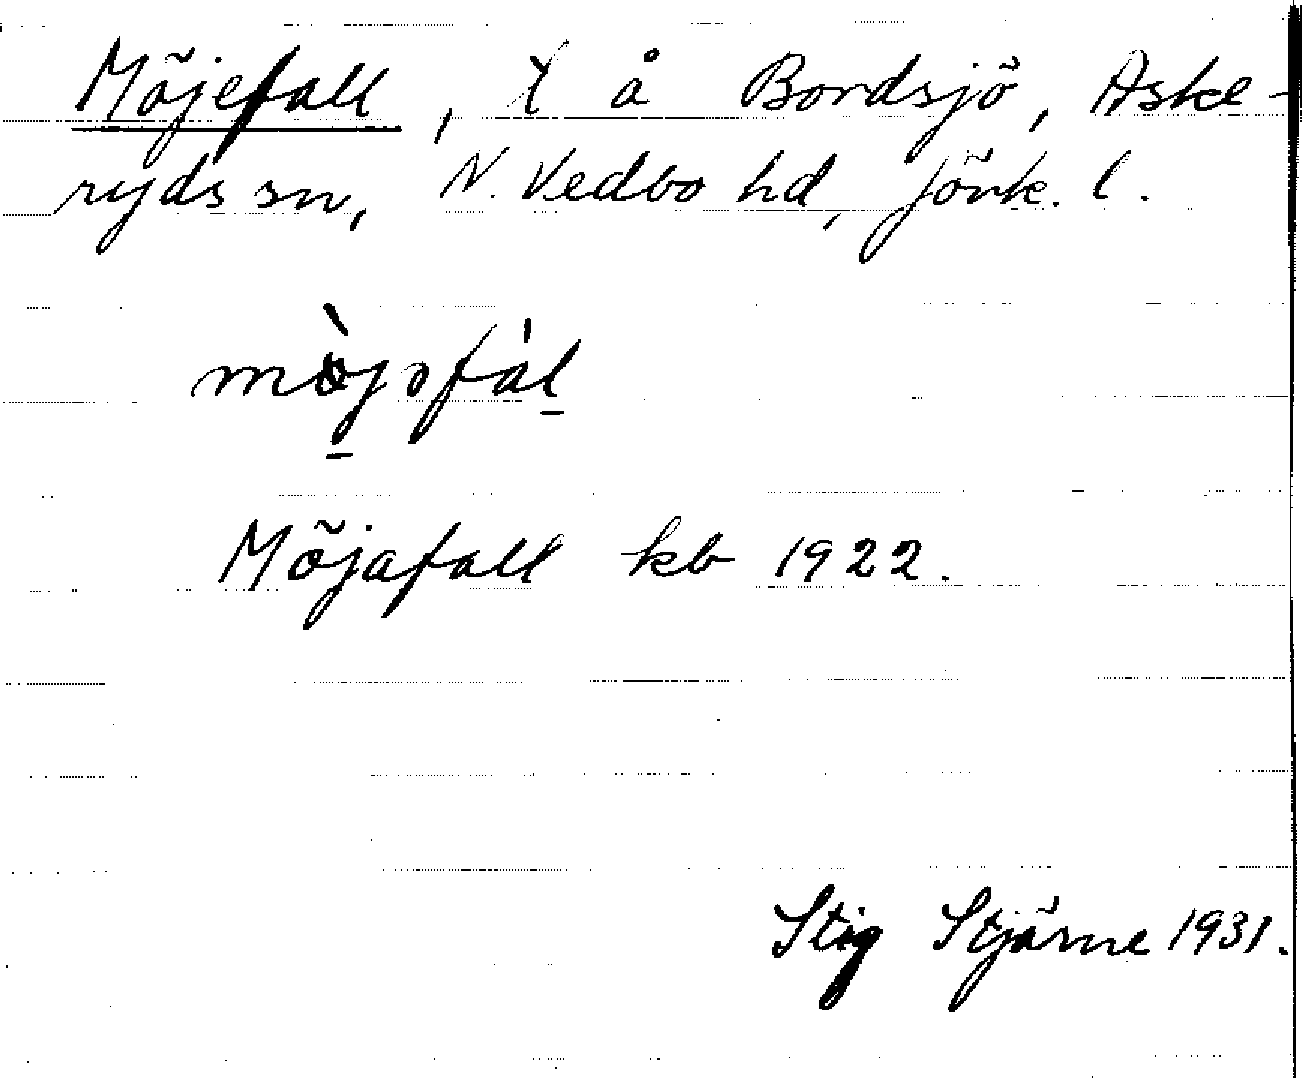 Möjefall, X å Bordsjö, Aske-
ryds sn, N. Vedbo hd, Jönk. l.
mö̀jəfál
Möjafall kb 1922.
Stig Stjärne 1931.